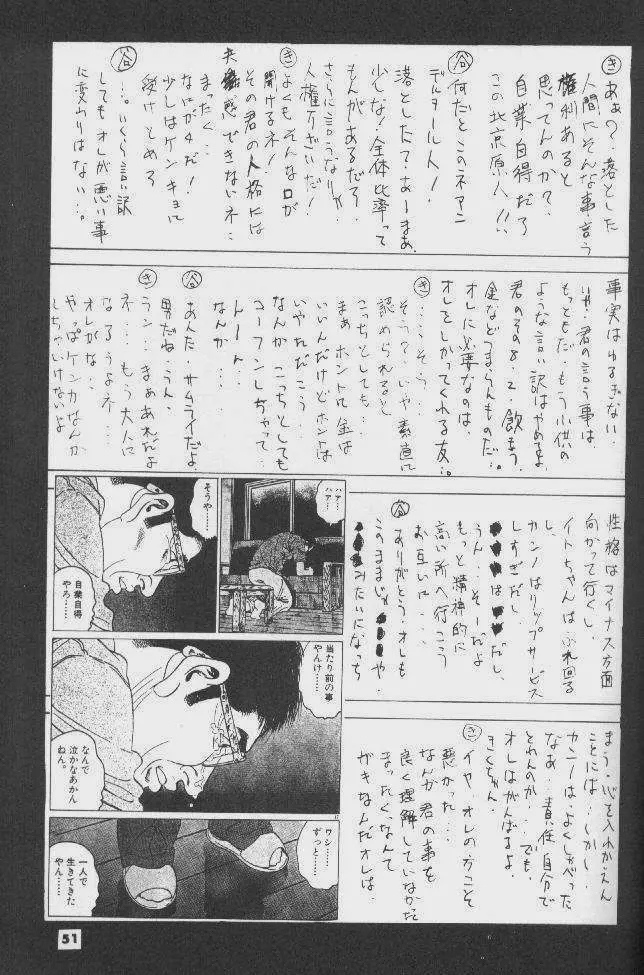 き あぁの?、落とした
人間にそんな事言う
権利あると
思ってんのか?、
自業自得だろ
この北京原人!!
谷 何だとこのネアン
デルタール人!、
落としたって、あーまあ、
少しな!全体比率って
もんがあるだろ、
さらに言うなりゃ、
人権だぎいだ!
き よくもそんな口が
聞けるネ!
その君の人格には
共感できないネ…
まったく…
なにが4だ!
少しはケンキョに
受けとめろ
谷 …。いくら言い訳
してもオレが悪い事
に変わりはない…。
事実はゆるぎない。
いや、君の言う事は
もっともだ、もう小供の
ような言い訳はやめるよ
君のその8.2、飲まう、
金などつまらんものだ。
オレに必要なのは、
オレをしかってくれる友…。
き …、こそら…
そう?、いや素直に
認められると
こっちとしても、
まあホントは金は
いいんだけどホントは
いやただこう…
なんかこっちとしても
コーフンしちゃって…
トーん…
なんか…
谷 あんた、サムライだよ、
男だね、うん、
き ラン…まぁあれだよ
ネ…、もう大人に
なろうよネ…、
オレがな…
やっぱケンカなんか
しちゃいけないよ
性格はマイナス方面
向かって行くし、
イトちゃんはふれ回る
し、
カンノはリップサービス
しすぎだし、
だし、
うん…そーだよ
もっと精神的に
高い所へ行こう
お互いに…
谷 ありがとう、オレも
このままじゃ や、
みたいになっち
まう、心を入れかえん
ことには…しかし、
カンノは、よくしゃべった
なあ…責任自分で
とれんのか…でも、
オレはがんばるよ、
きくちゃん、
き イヤ、オレの方こそ
悪かった…
なんか君の事を
良く理解していなかった
まったく、なんて
ガキなんだオレは、
ハァ…
ハァ…
そうや……
自業自得
やろ……
当たり前の事
やんけ……
なんで
泣かなあかん
ねん。
ワシ……
ずっと……
一人で
生きてきた
やん……
51